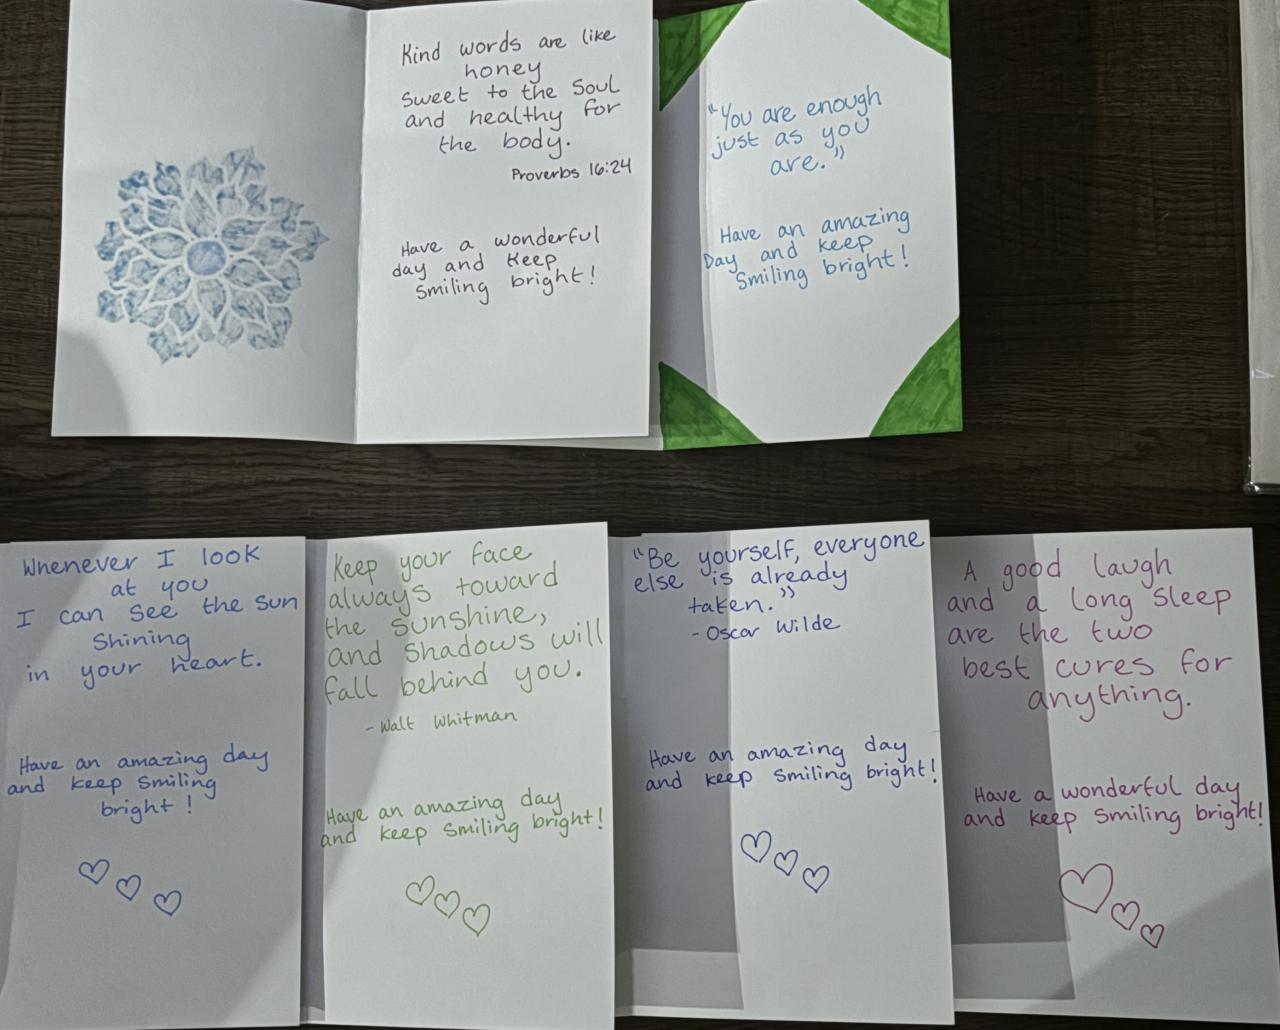 Kind words are like
honey
sweet to the soul
and healthy for
the body.
Proverbs 16:24
Have a wonderful
day and keep
smiling bright!
"You are enough
just as you
are."
Have an amazing
Day and keep
smiling bright!
Whenever I look
at you
I can see the sun
shining
in your heart.
Have an amazing day
and keep smiling
bright!
Keep your face
always toward
the sunshine,
and shadows will
fall behind you.
- Walt Whitman
Have an amazing day
and keep smiling bright!
"Be yourself, everyone
else is already
taken."
- Oscar Wilde
Have an amazing day
and keep smiling bright!
A good laugh
and a long sleep
are the two
best cures for
anything.
Have a wonderful day
and keep smiling bright!